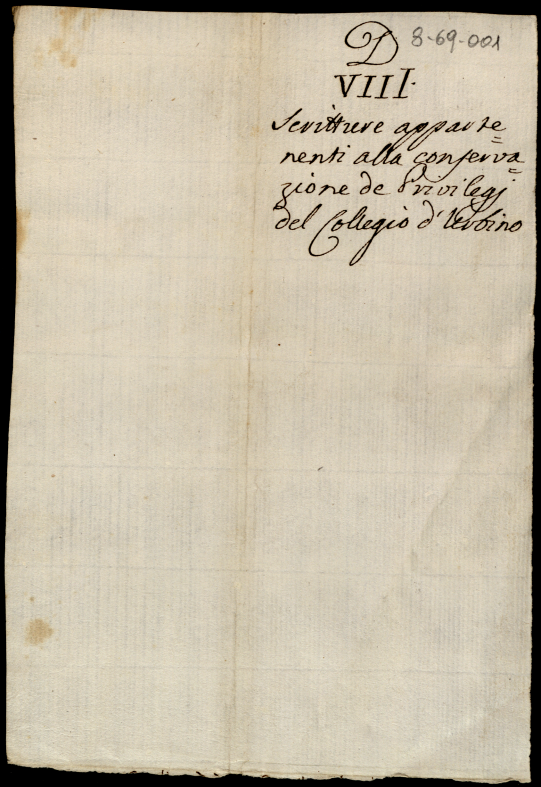 8-69-001
D
VIII.
Scritture apparte=
nenti alla conserva=
zione de Privilegj
del Collegio d'Urbino